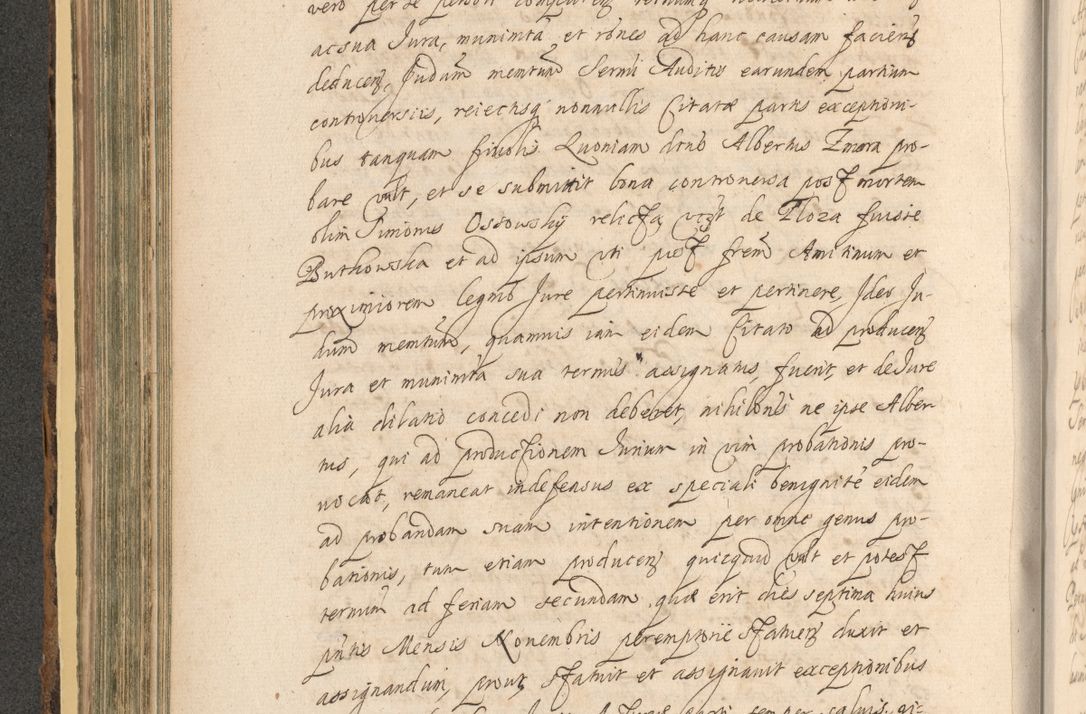 vero per se person
ac sua Jura, munimta et rones ad hanc causam faciens
deducen, Judam memtum Sermi Auditis earundem partium
controversiis, reiectisq nonnullis Citatæ partis exceptioni-
bus tanquam frivolis Quoniam dctus Albertus Zmora pro-
bare vult, et se submittit bona controversa post mortem
olim Simonis Ossowskij relicta, vizt de Zloza fuisse
Buthowska et ad ipsum uti post frem Amitinum et
proximiorem legmo Jure pertinuisse et pertinere, Ideo Ju-
dum memtum, quamvis iam eidem Citato ad producen
Jura et munimta sua termus assignatus fuerit, et de Jure
alia dilatio concedi non deberet, nihilonis ne ipse Alber
tus, qui ad productionem Jurium in vim probationis pro-
vocat, remaneat indefensus ex speciali benignitte eidem
ad probandam suam intentionem per omne genus pro-
bationis, tum etiam producen quicquid vult et potest
terminum ad feriam secundam quæ erit dies septima huius
pntis Mensis Novembris peremptorie statuen duxit et
assignandum, prout statuit et assignavit exceptionibus
semper salvis